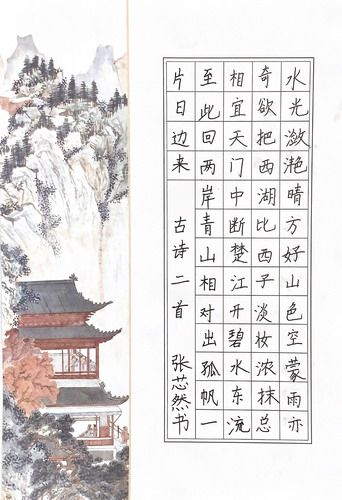 水光潋滟晴方好山色空蒙雨亦
奇欲把西湖比西子淡妆浓抹总
相宜天门中断楚江开碧水东流
至此回两岸青山相对出孤帆一
片日边来 古诗二首 张芯然书